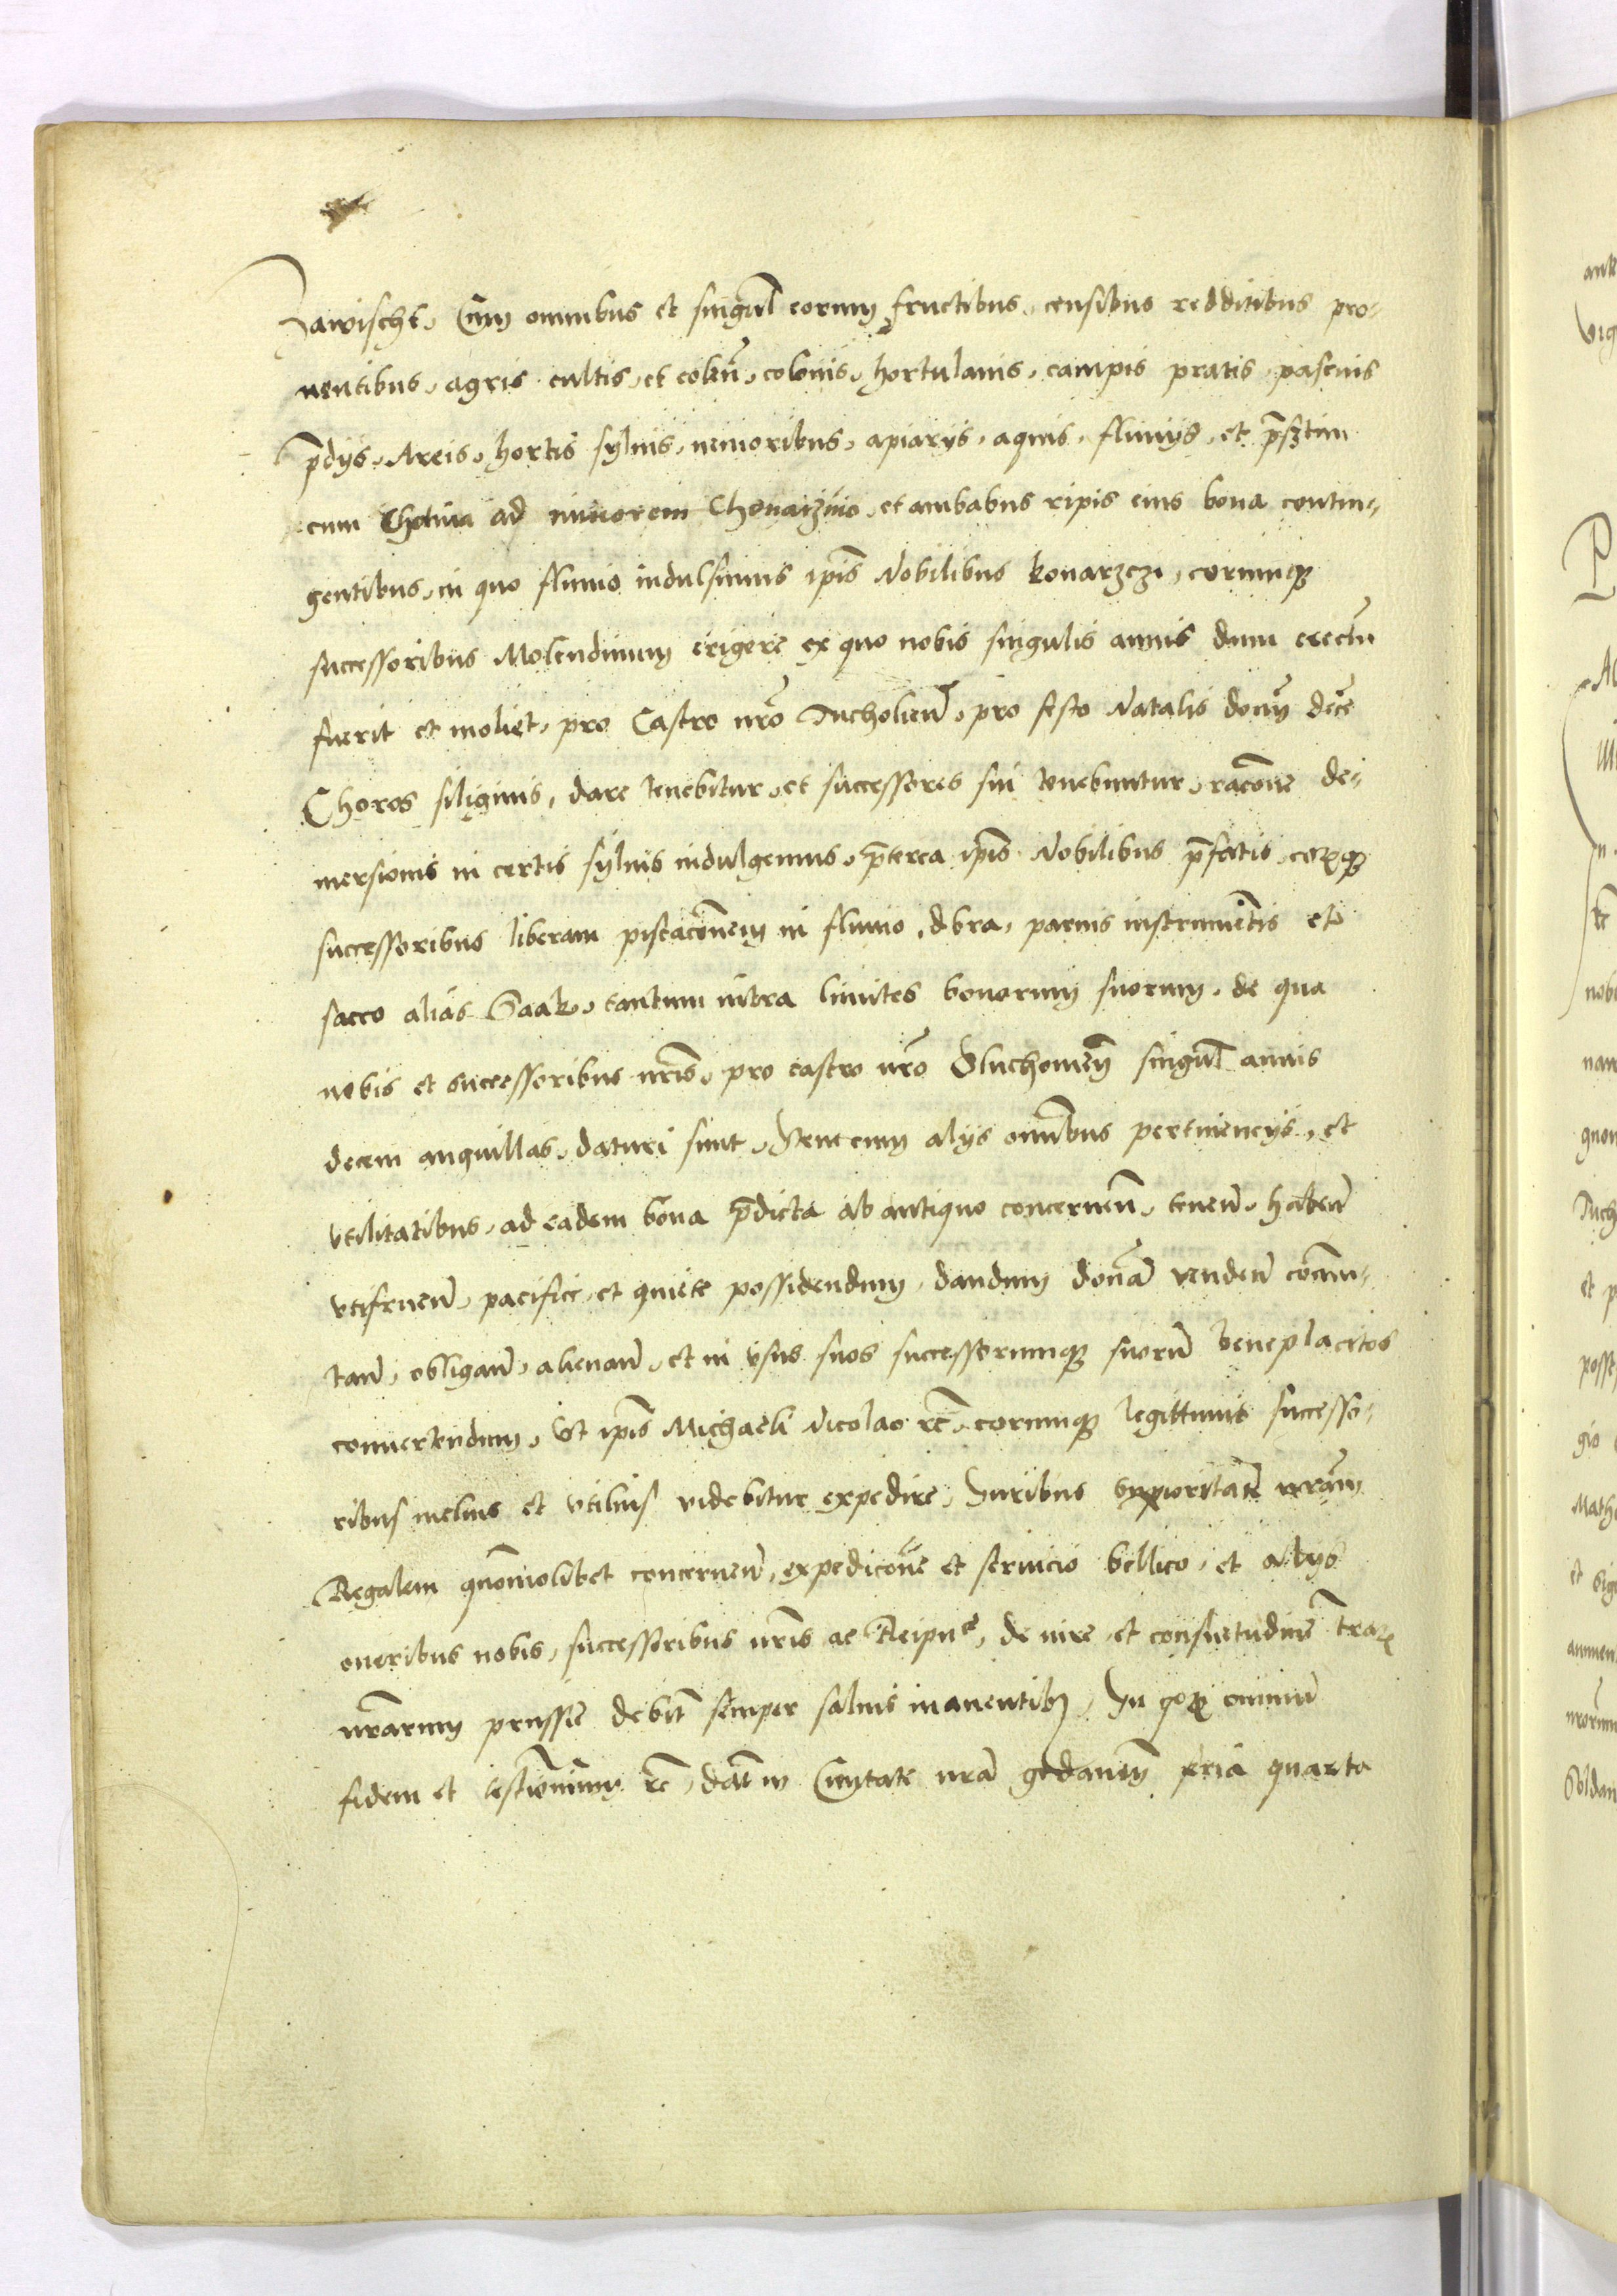 Zawischt, Cum omnibus et singul̄ eorum fructibus, censibus redditibus pro-
uentibus, agris cultis, et colen̄, colonis, hortulanis, campis pratis, pascuis
p̄dijs, Areis, hortis syluis, nemoribus, apiarijs, aquis, fluuijs, et p̄sertim
cum ad minorem et ambabus ripis eius bona contin-
gentibus, in quo fluuio indulsimus ip̄is Nobilibus Konarzczi, eorumq
successoribus Molendinum erigere ex quo nobis singulis annis dum erectū
fuerit et moliet, pro Castro nr̄o Tucholien̄, pro festo Natalis domī decē
Choros siliginis, dare tenebitur, et successores sui tenebuntur, rac̄one de-
mersionis in certis syluis indulgemus, p̄terea ip̄is Nobilibus p̄fatis, eorq
successoribus liberam piscac̄onem in fluuio, dbra, paruis instrumēntis et
sacco alias Saak, tantum intra limites bonorum suorum, de qua
nobis et successoribus nr̄is, pro castro nr̄o Sluchouien̄ singul̄ annis
decem anguillas, daturi sunt, Item cum alijs om̄ibus pertinencijs, et
vtilitatibus, ad eadem bona p̄dicta ab antiquo concernen̄, tenen̄, haben̄
vtifruen̄, pacifice, et quiete possidendum, dandum donan̄ venden̄ com̄u-
tan̄, obligan̄, alienan̄, et in vsus suos successorumq suorū beneplacitos
conuertendum, Vt ip̄is Michaeli Nicolao rc̄, eorumq legittimis successo-
ribus melius et vtilius videbitur expedire, Iuribus nr̄am
Regalem quomōlibet concernen̄, expedic̄one et seruicio bellico, et alijs
oneribus nobis, successoribus nr̄is ac Reipuc̄e, de iure et consuetudine trar̄
nr̄arum prussie debit̄ semper saluis manentib, In qor omniū
fidem et testīonium rc̄, dat̄ in Ciuitate nrā gedanen̄ feria quarta